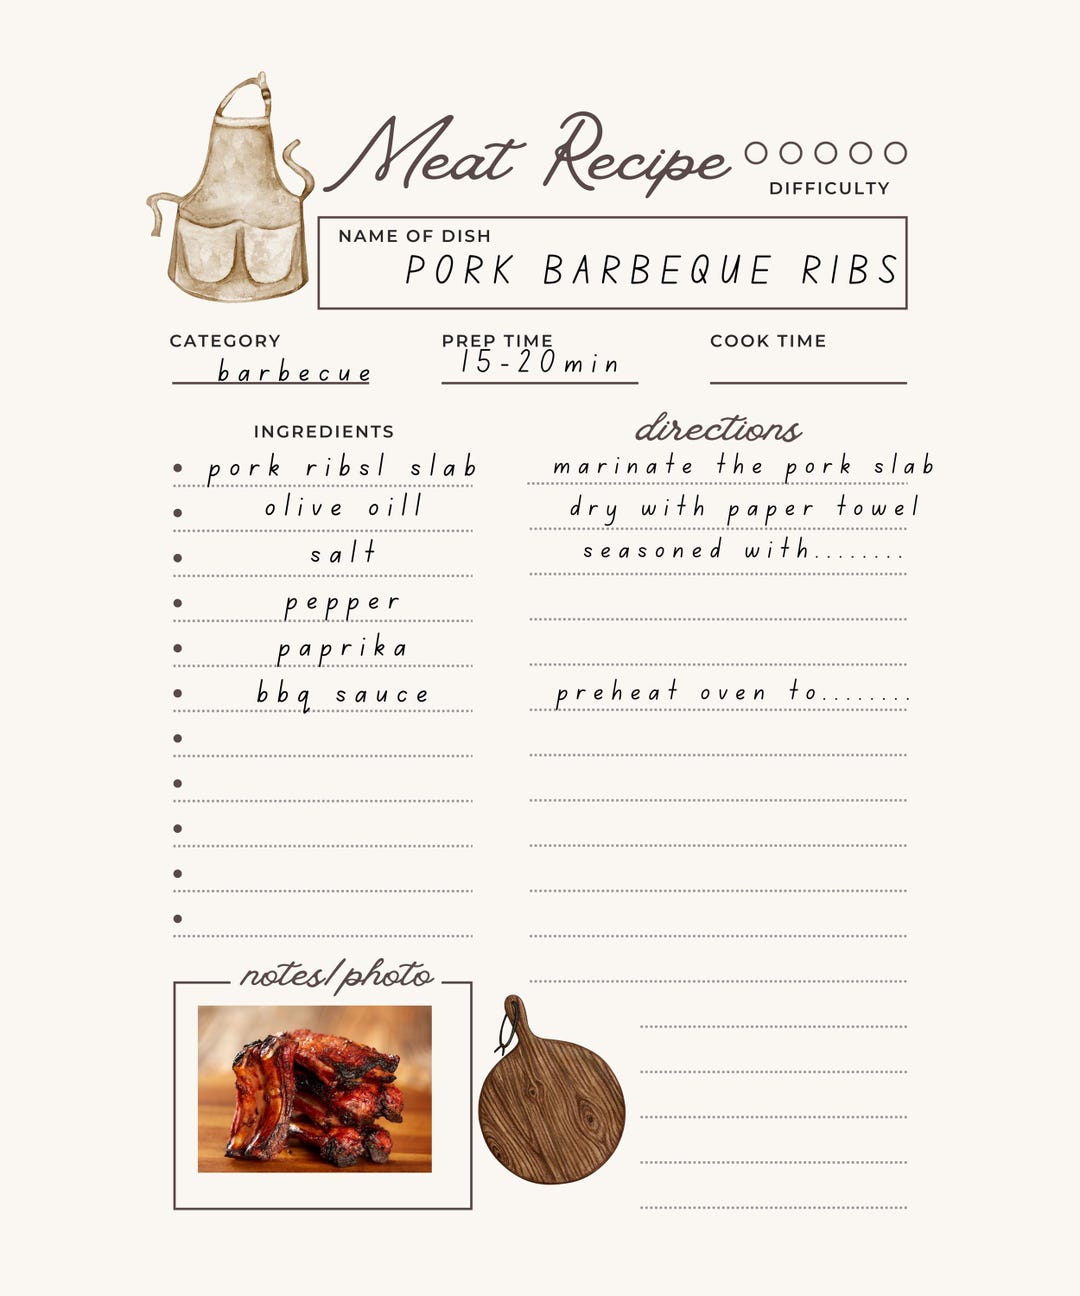 Meat Recipe
DIFFICULTY
NAME OF DISH
PORK BARBEQUE RIBS
CATEGORY
barbecue
PREP TIME
15-20min
COOK TIME
INGREDIENTS
pork ribsl slab
olive oill
salt
pepper
paprika
bbq sauce
directions
marinate the pork slab
dry with paper towel
seasoned with........
preheat oven to........
notes/photo